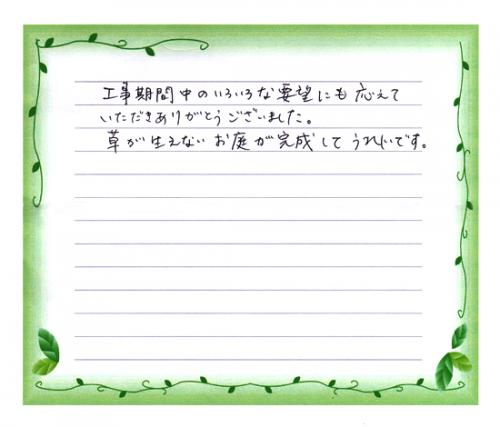 工事期間中のいろいろな要望にも応えて
いただきありがとうございました。
草が生えないお庭が完成してうれしいです。